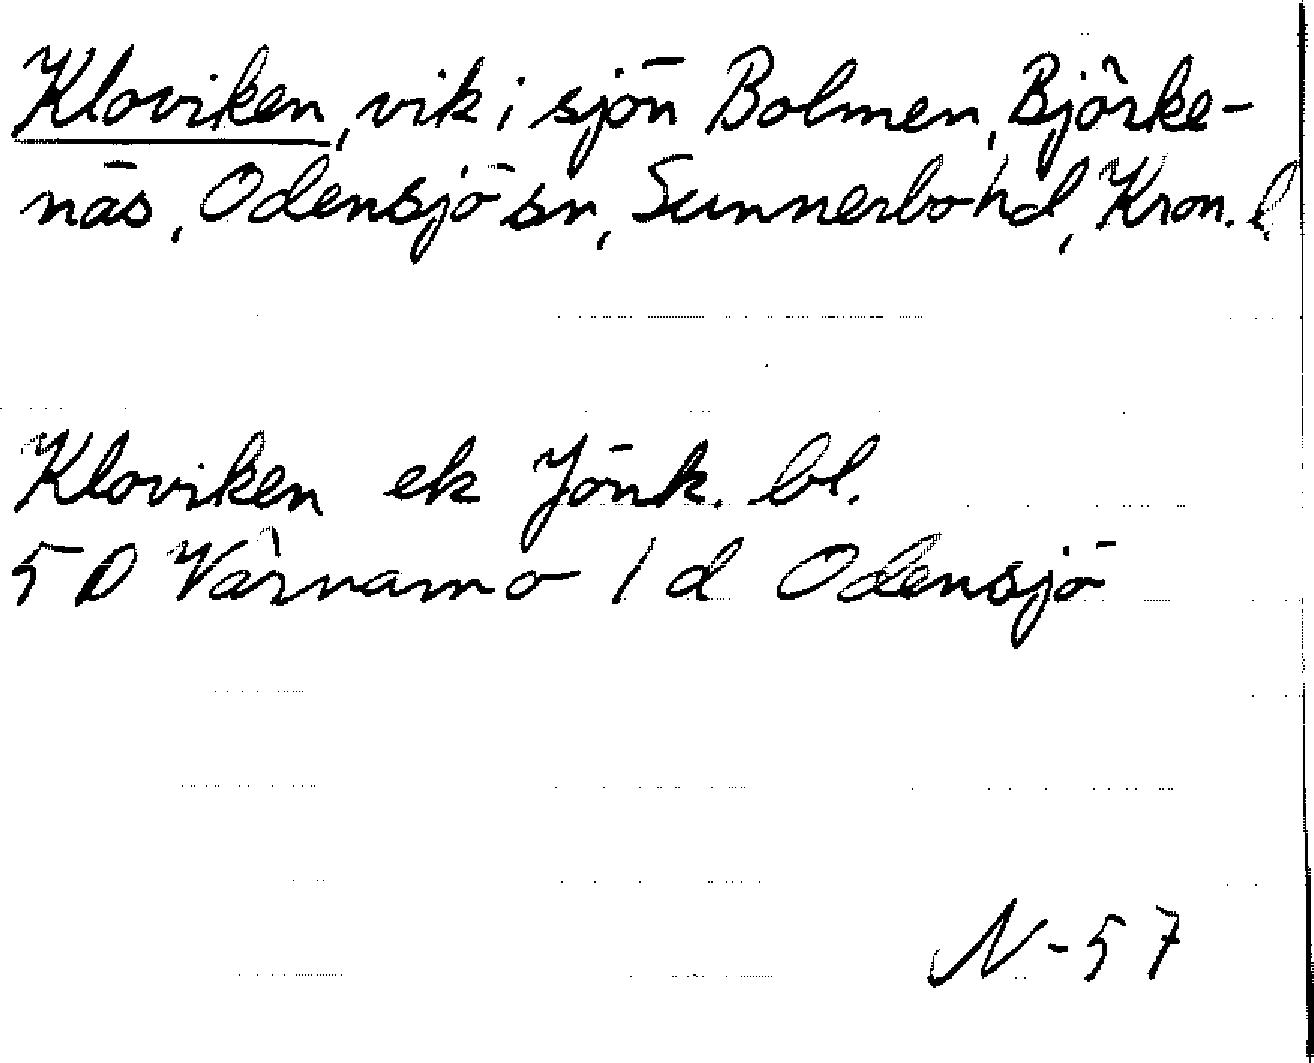 Kloviken, vik i sjön Bolmen, Björke-
näs, Odensjö sn, Sunnerbo hd, Kron. l.
Kloviken ek Jönk. bl.
5 D Värnamo 1 d Odensjö
N-57